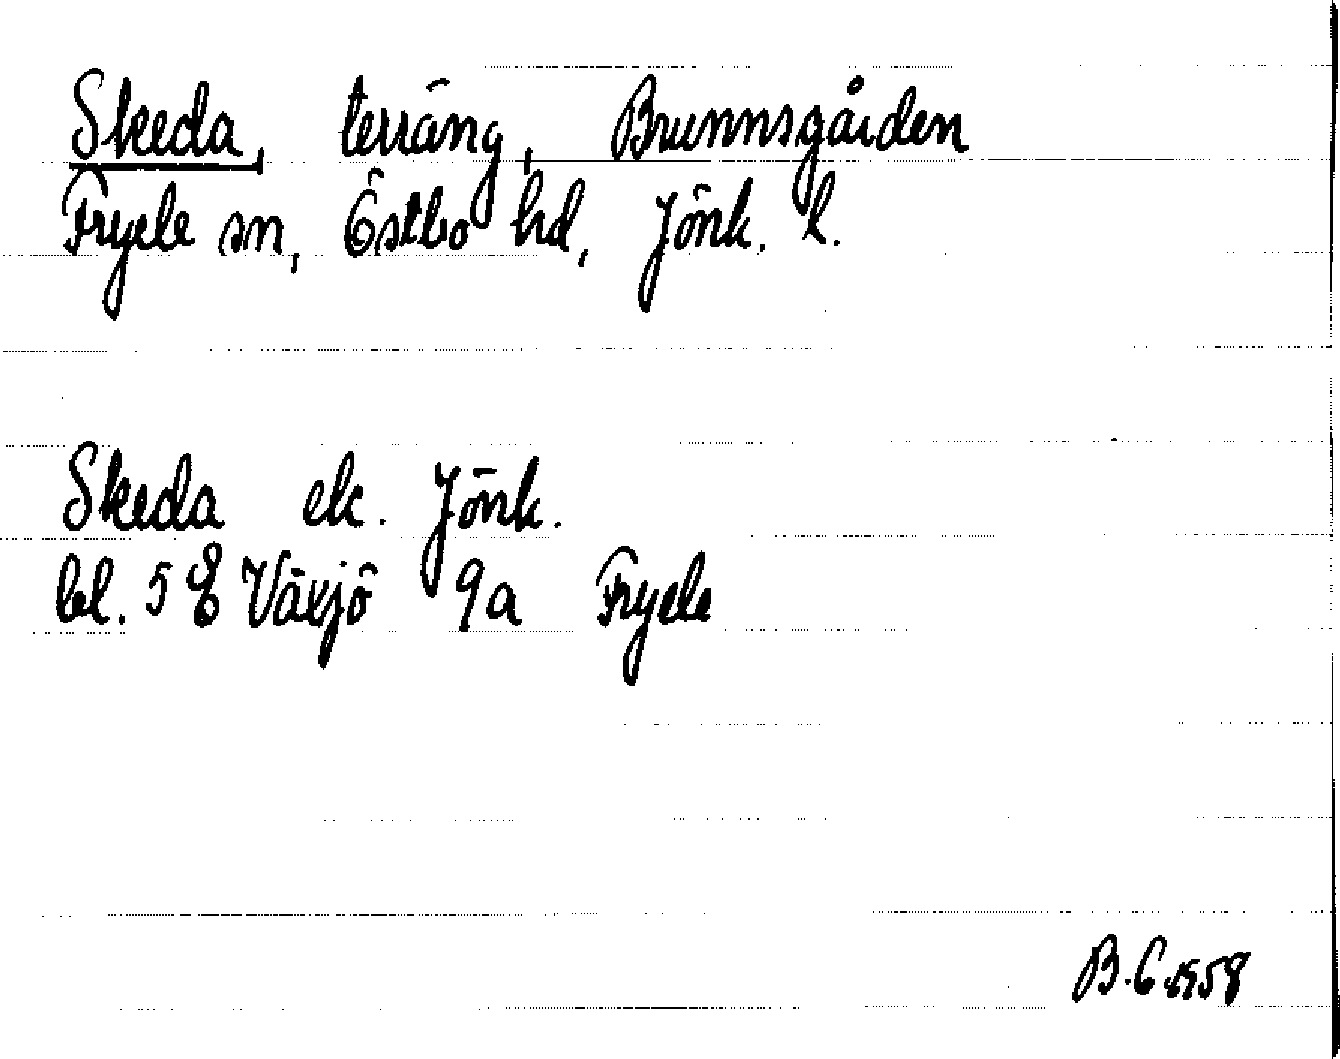 Skeda, terräng, Brunnsgården
Fryele sn, Östbo hd, Jönk. l.
Skeda ek. Jönk.
bl. 5 E Växjö 9a Fryele
B.G. 1958